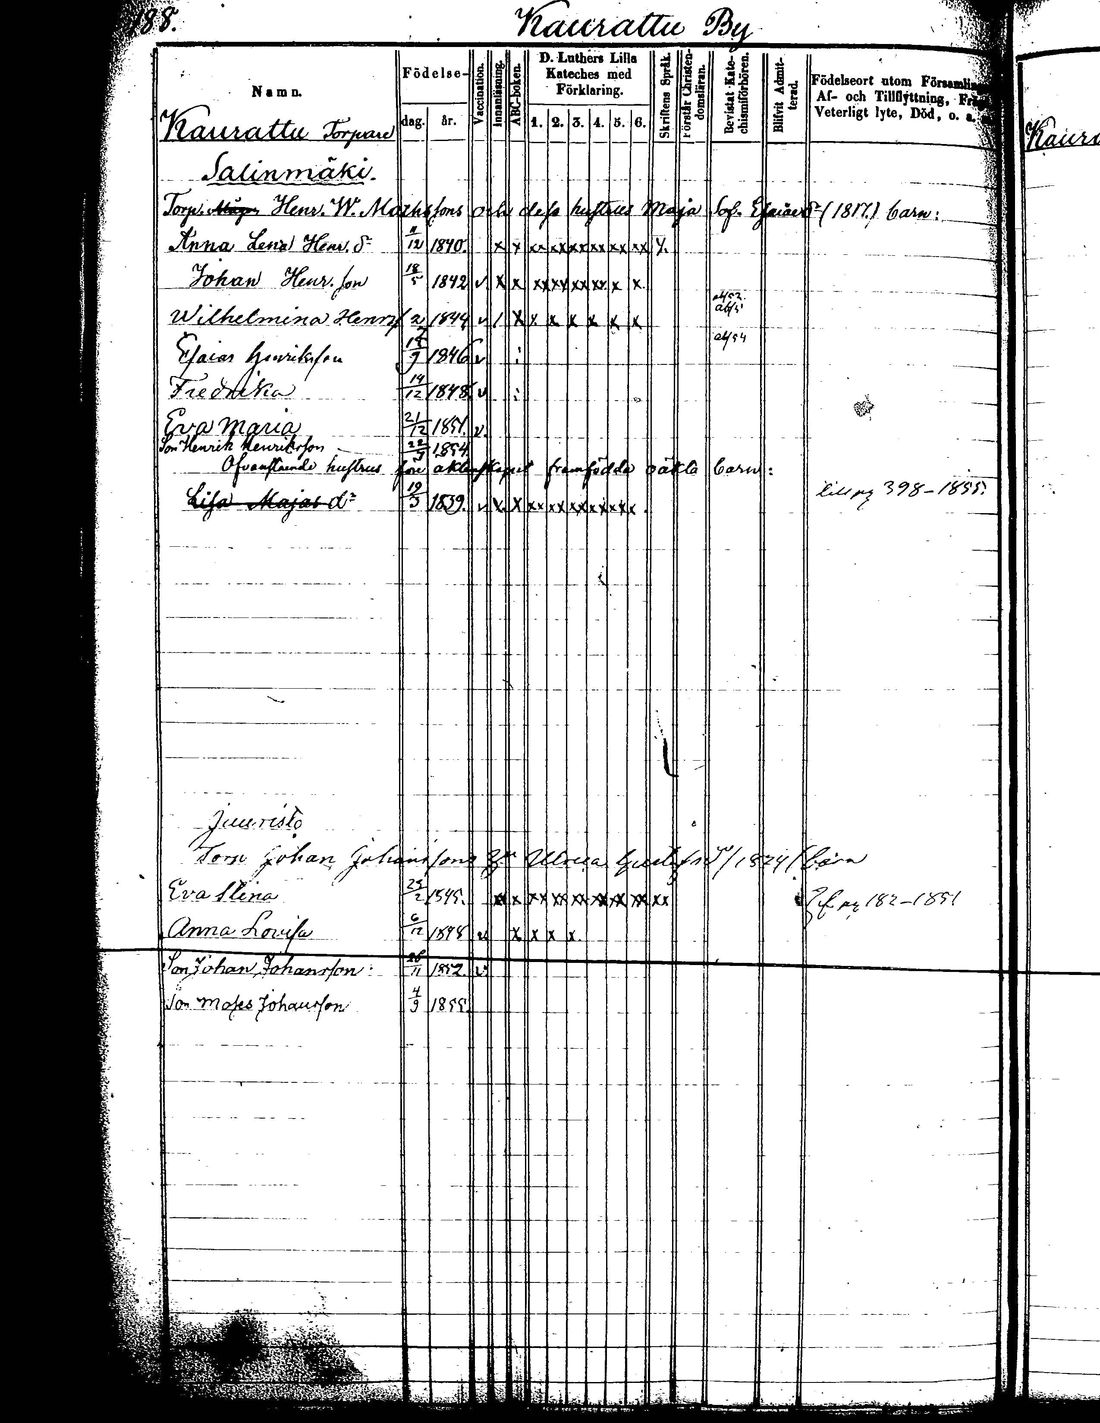 188.
Kaurattu By
Namn.
Födelse-
dag.
år.
Vaccination.
Innanläsning.
ABC-boken.
D. Luthers Lilla
Kateches med
Förklaring.
1. 2. 3. 4. 5. 6.
Skriftens Språk.
Förstår Christen-
domsläran.
Bevistat Kate-
chismiförhören.
Blifvit Admit-
terad.
Födelseort utom Församlin
Af- och Tillflyttning, Frä
Veterligt lyte, Död, o. a.
Kaurattu Torpare
Salinmäki.
Torp. Henr. W. Mathssons och dess hustrus Maja Sof. Esaiæ d:r (1817.) barn:
Anna Lena Henr. d:r 11/12 1840. x x xx xx xx xx xx xx x
Johan Henr. son 18/5 1842 v x x xx xx xx xx x x
Wilhelmina Henr 2/7 1844 v / x x x x x x x
Esaias Henriksson 18/9 1846 v
54
Fredrika 14/12 1848 v
Eva Maria 21/12 1851. v
Son Henrik Henriksson 22/9 1854
Ofvanstående hustrus före äktenskapet framfödda oäkta barn:
Lisa Majas d:r 19/3 1839. v x x xx xx xx xx xx x
398-1855.
Juuristo
Torp Johan Johanssons Ulrica Gustafsd:r (1824) barn
Eva Stina 23/2 1845. x x xx xx xx xx xx xx xx
182-1851
Anna Lovisa 6/12 1848 v x x x x
Son Johan Johansson: 26/11 1852. v
Son Moses Johansson 4/9 1855.
Kaur